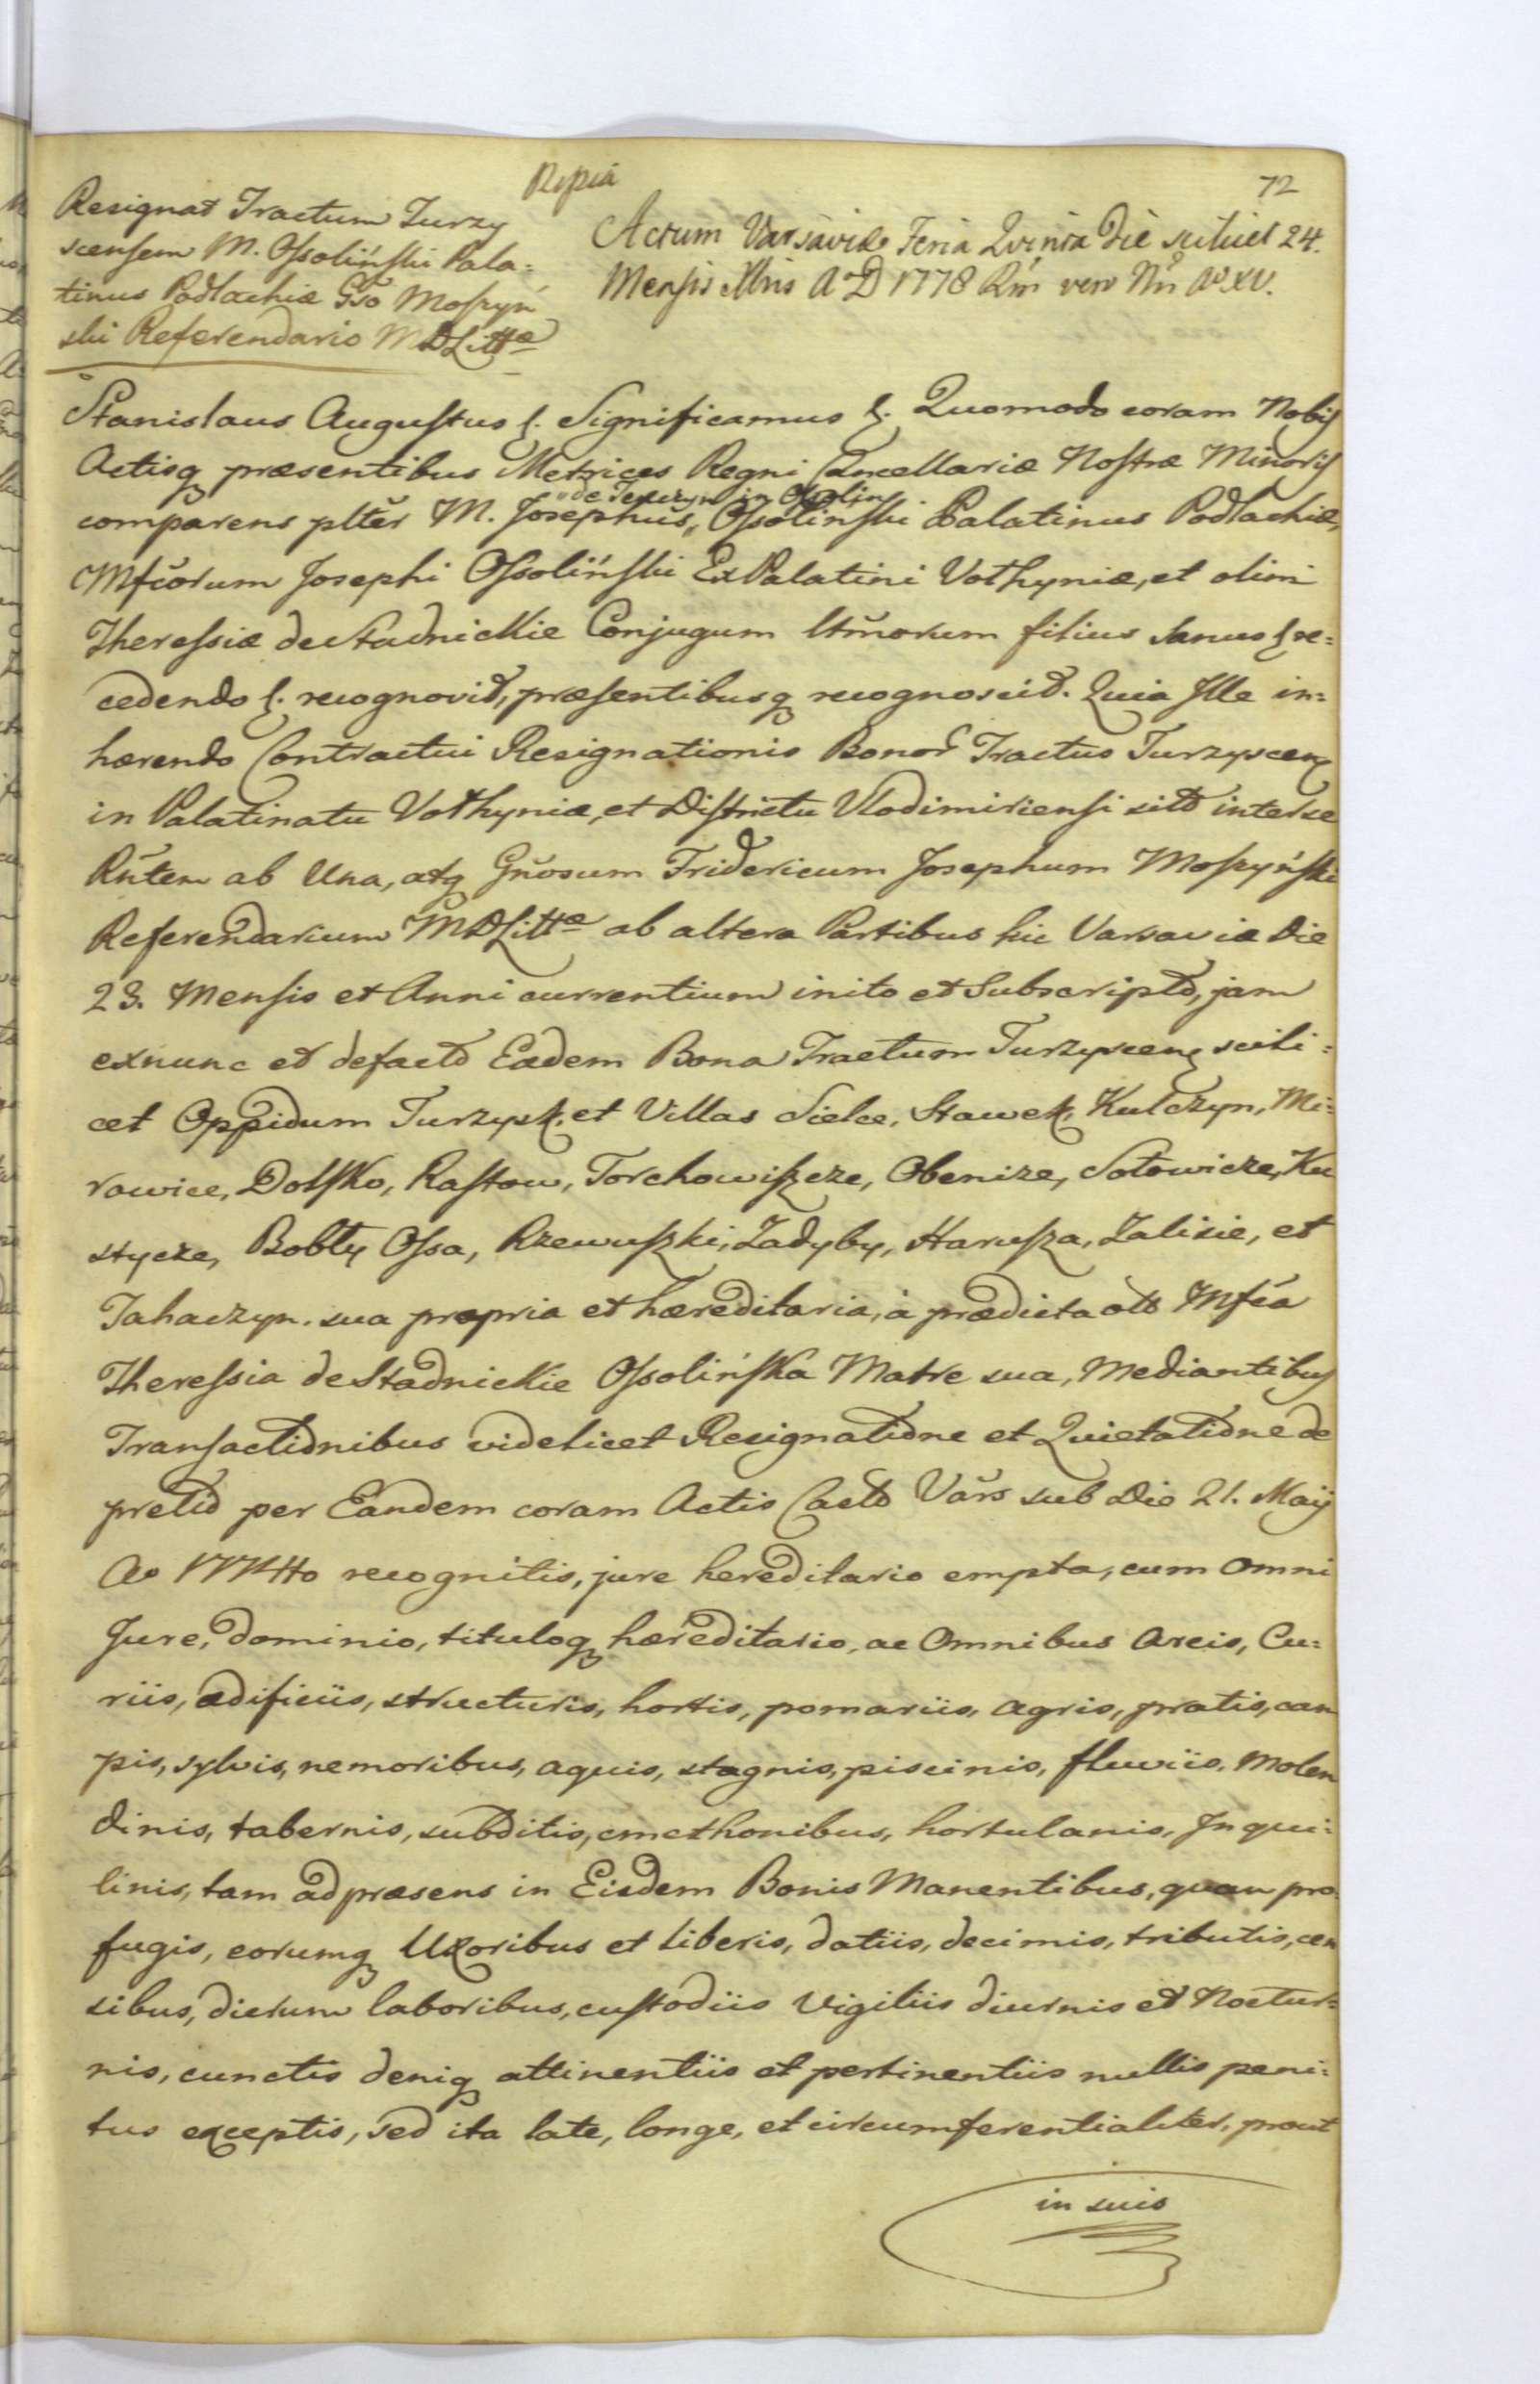 72
Resignat Tractum Turzy
scensem M. Ossoliński Pala=
tinus Podlachiæ Gso Moszyń
ski Referendario MDLittæ
Actum Varsaviæ Feria Qvinta Die scilicet 24.
Mensis Xbris A D 1778 Rni vero Nri Ao XV.
Stanislaus Augustus &. Significamus &. Quomodo coram Nobis
Actisq præsentibus Metrices Regni Cancellariæ Nostræ Minoris
de Tenczyn in Ossolin
comparens plter M. Josephus, Ossoliński Palatinus Podlachiæ,
Mfcorum Josephi Ossoliński ExPalatini Volhyniæ, et olim
Theressiæ de Stadnickie Conjugum ltmorum filius Sanus & re=
cedendo &. recognovit, præsentibusq recognoscit. Quia Ille in=
hærendo Contractui Resignationis Bonor Tractus Turzyscens
in Palatinatu Volhyniæ, et Districtu Vlodimiriensi sito inter se
Rntem ab Una, atq Gnosum Fridericum Josephum Moszyński
Referendarium MDLittæ ab altera Partibus hic Varsaviæ die
23. Mensis et Anni currentium inito et Subscripto, jam
exnunc et defacto Eadem Bona Tractum Turzyscens scili=
cet Oppidum Turzysk, et Villas Sielce, Stawek, Kulczyn, Mi=
rowice, Dolsko, Rastow, Torchowiszcze, Obenize, Solowicze, Ku
stycze, Bobly Ossa, Rzewuszki, Zadyby, Harusza, Zalisie, et
Tahaczyn. sua propria et hæreditaria, à prædicta olt Mfca
Theressia de Stadnickie Ossolińska Matre sua, Mediantibus
Transactionibus videlicet Resignatione et Quietatione de
pretio per Eandem coram Actis Casto Vars sub Die 21. Maij
Ao 1774tto recognitis, jure hereditario empta, cum omni
Jure, dominio, tituloq hæreditario, ac Omnibus Areis, Cu=
riis, ædificiis, structuris, hortis, pomariis, agris, pratis, cam
pis, sylvis, nemoribus, aquis, stagnis, piscinis, fluviis, Molen
dinis, tabernis, subditis, cmethonibus, hortulanis, Inqui=
linis, tam ad præsens in Eisdem Bonis Manentibus, quam pro
fugis, eorumq Uxoribus et Liberis, datiis, decimis, tributis, cen
sibus, dierum laboribus, custodiis Vigiliis diurnis et Noctur=
nis, cunctis deniq attinentiis et pertinentiis nullis peni=
tus exceptis, sed ita late, longe, et circumferentialiter, prout
in suis